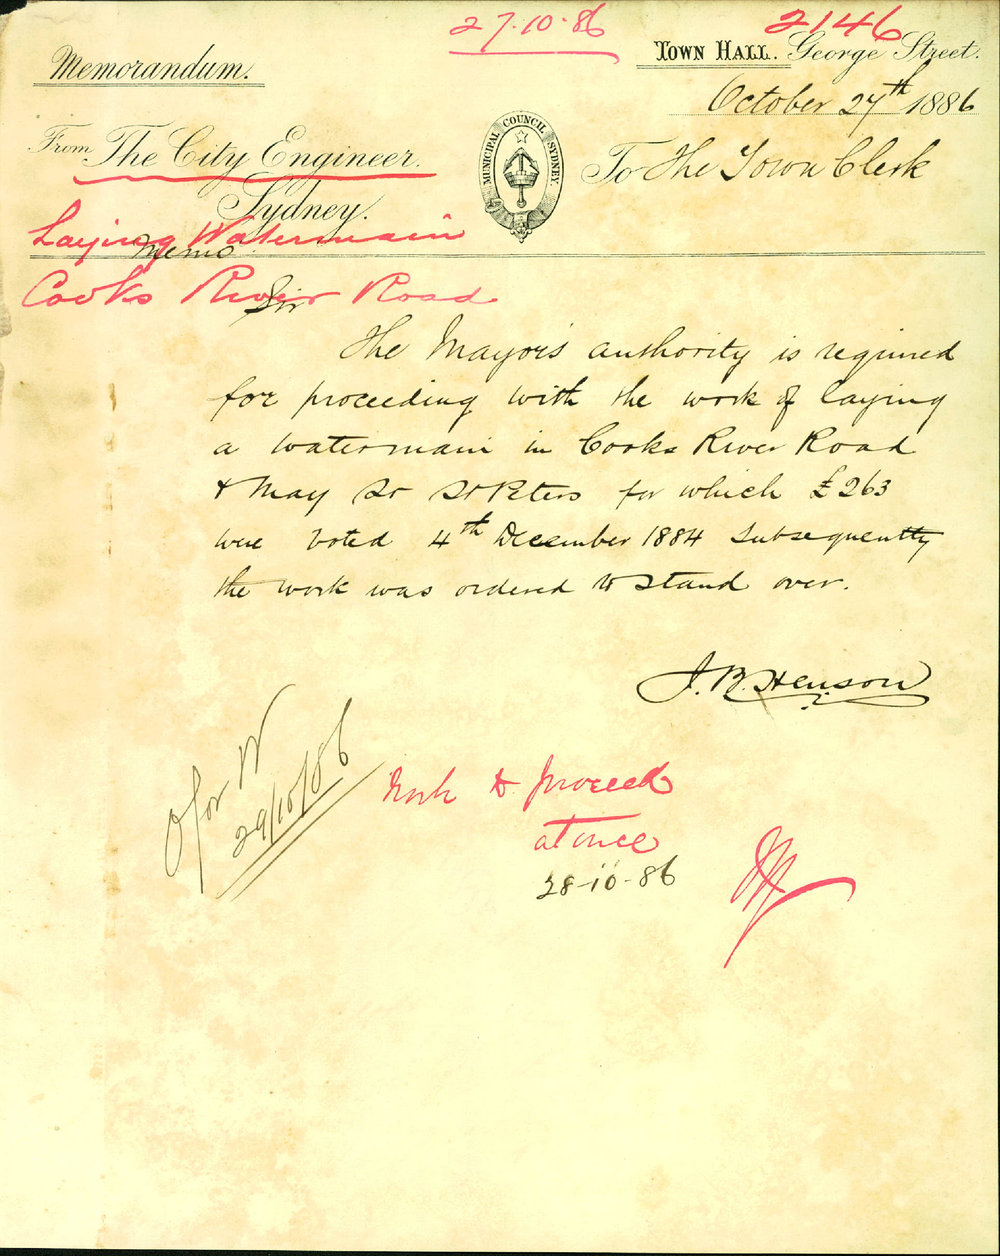 27.10.86
2146
Memorandum.
TOWN HALL. George Street.
October 27th 1886
From The City Engineer.
Sydney.
MUNICIPAL COUNCIL SYDNEY.
To The Town Clerk
Laying Watermain
Memo
Cooks River Road
Sir
The Mayor's authority is required
for proceeding with the work of laying
a watermain in Cooks River Road
& May St St Peters for which £263
were voted 4th December 1884 Subsequently
the work was ordered to stand over.
J. B. Henson
O for W
29/10/86
Work to proceed
at once
28-10-86